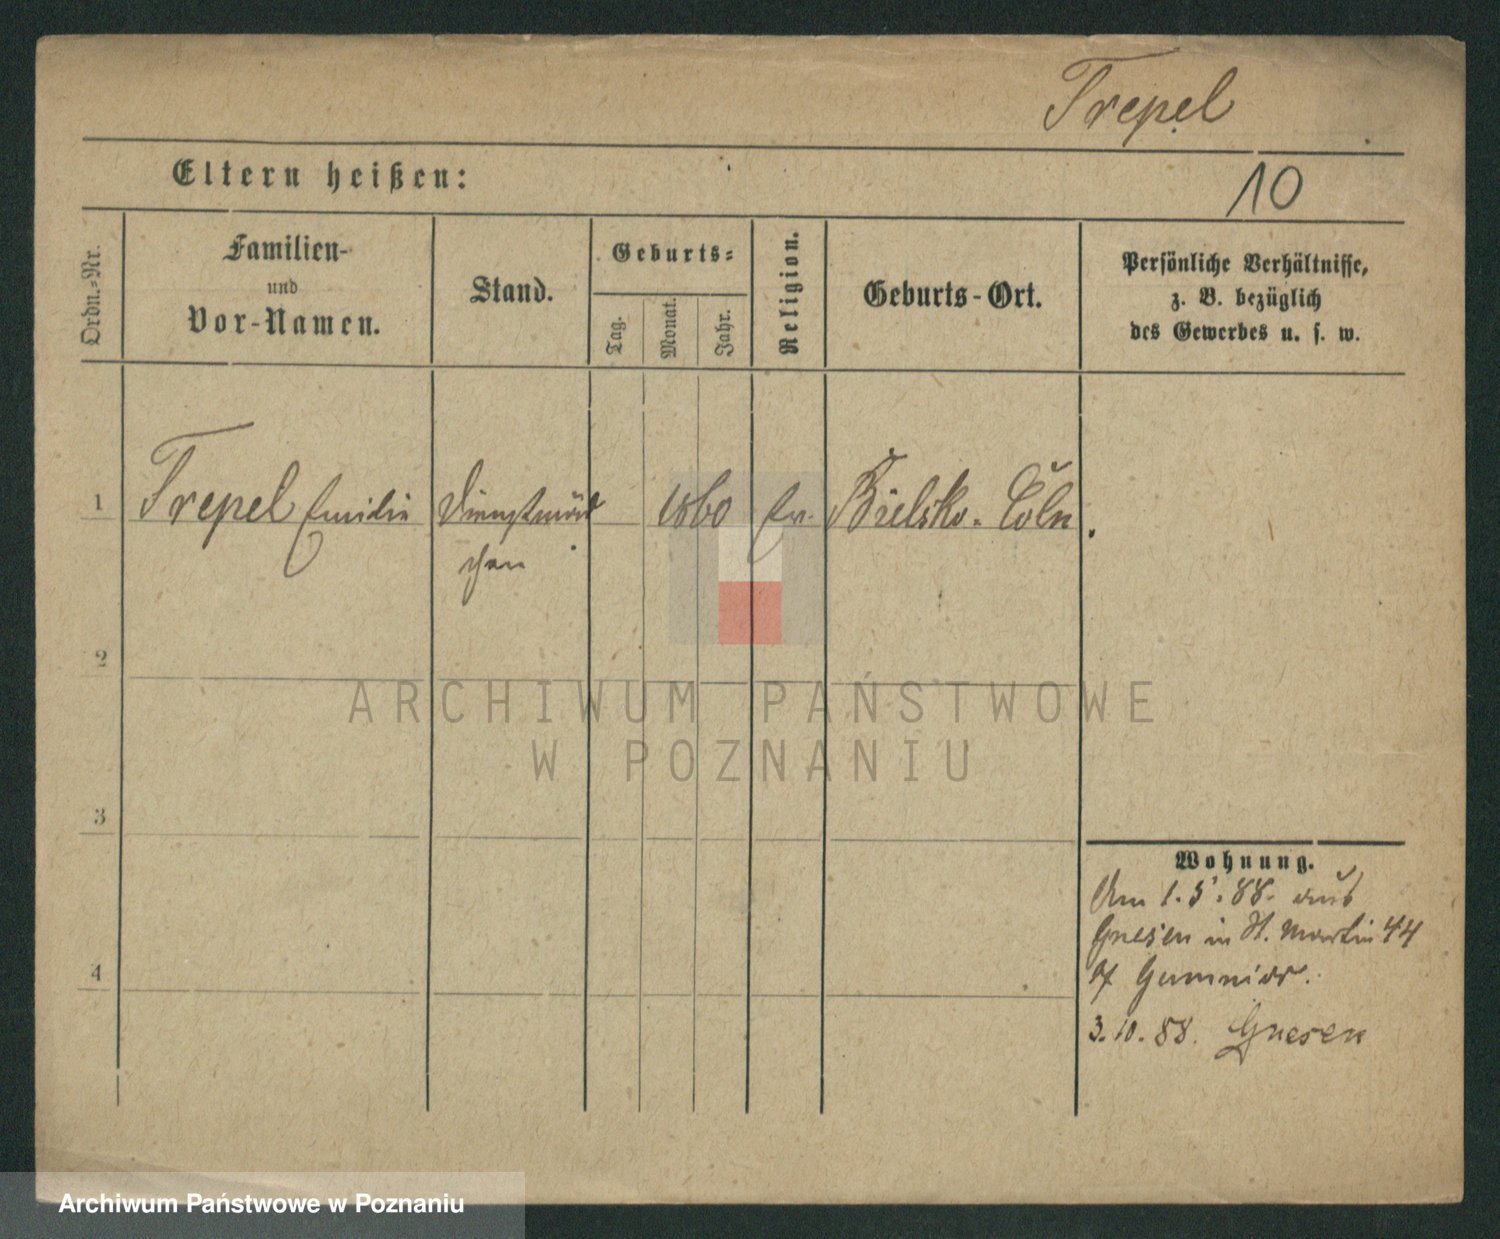 Trepel
Eltern heißen:
10
Ordn.-Nr.
Familien-
und
Vor-Namen.
Stand.
Geburts-
Tag.
Monat.
Jahr.
Religion.
Geburts-Ort.
Persönliche Verhältnisse,
z. B. bezüglich
des Gewerbes u. s. w.
1 Trepel Emilie Dienstmäd 1860 ev. Bielsko. Cöln.
chen
2
ARCHIWUM PAŃSTWOWE
W POZNANIU
3
Wohnung.
Am 1.5.88. aus
Gnesen in St. Martin 44
3.10.88. Gnesen
4
Archiwum Państwowe w Poznaniu